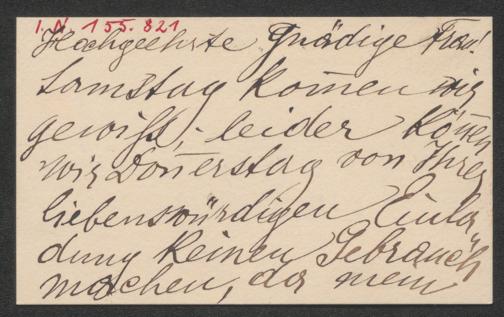 I.N. 155.821
Hochgeehrte Gnädige Frau!
Samstag kom̅en wir
gewiß, leider kön̅en
wir Don̅erstag von Ihrer
liebenswürdigen Einla
dung keinen Gebrauch
machen, da mein